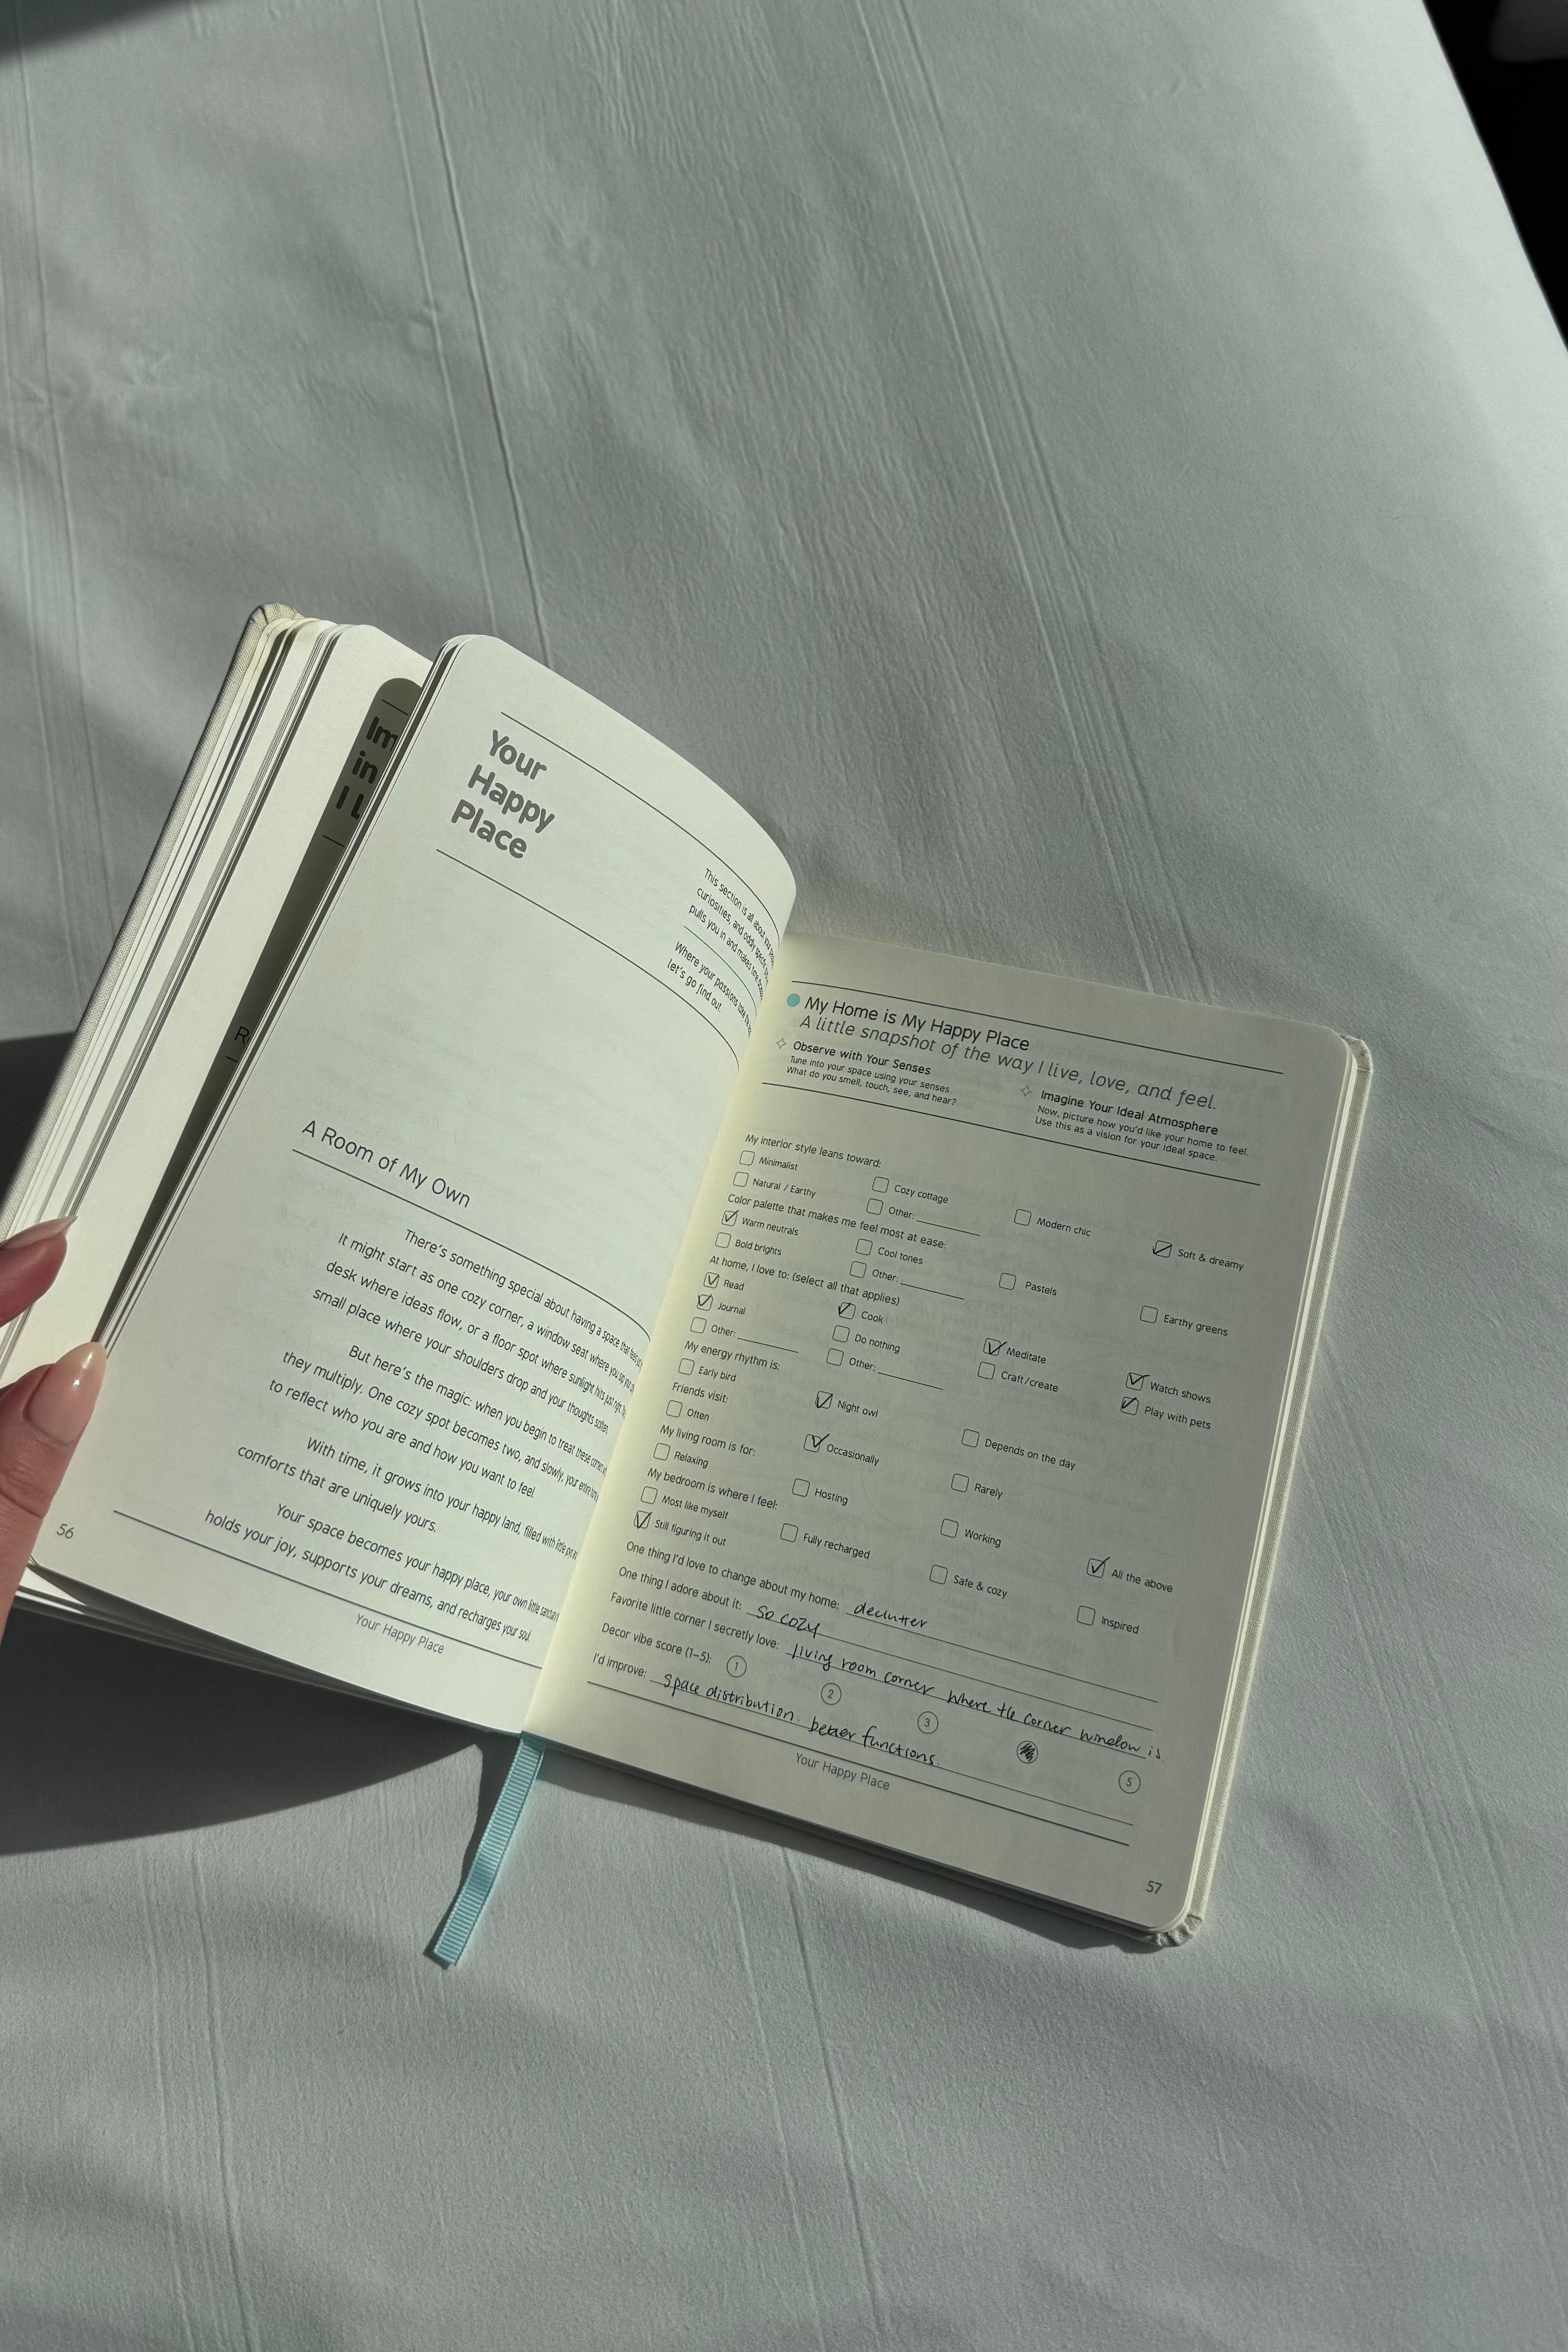 Im
in
I L
R
Your
Happy
Place
This section is all about you
curiosities, and oddly specific
pulls you in and makes time
Where your passions take
let's go find out.
A Room of My Own
There's something special about having a space that feels
It might start as one cozy corner, a window seat where you
desk where ideas flow, or a floor spot where sunlight hits just right.
small place where your shoulders drop and your thoughts soften.
But here's the magic: when you begin to treat these corners
they multiply. One cozy spot becomes two, and slowly, your entire
to reflect who you are and how you want to feel.
With time, it grows into your happy land, filled with little
comforts that are uniquely yours.
Your space becomes your happy place, your own little
holds your joy, supports your dreams, and recharges your soul.
Your Happy Place
56
My Home is My Happy Place
A little snapshot of the way I live, love, and feel.
Observe with Your Senses
Tune into your space using your senses.
What do you smell, touch, see, and hear?
Imagine Your Ideal Atmosphere
Now, picture how you'd like your home to feel.
Use this as a vision for your ideal space.
My interior style leans toward:
Minimalist Cozy cottage Modern chic Soft & dreamy
Natural / Earthy Other:
Color palette that makes me feel most at ease:
Warm neutrals Cool tones Pastels Earthy greens
Bold brights Other:
At home, I love to: (select all that applies)
Read Cook Meditate Watch shows
Journal Do nothing Craft/create Play with pets
Other: Other:
My energy rhythm is:
Early bird Night owl Depends on the day
Friends visit:
Often Occasionally Rarely
My living room is for:
Relaxing Hosting Working All the above
My bedroom is where I feel:
Most like myself Fully recharged Safe & cozy Inspired
Still figuring it out
One thing I'd love to change about my home: declutter
One thing I adore about it: so cozy
Favorite little corner I secretly love: living room corner where the corner window is
Decor vibe score (1–5): 1 2 3 5
I'd improve: space distribution. better functions.
Your Happy Place
57